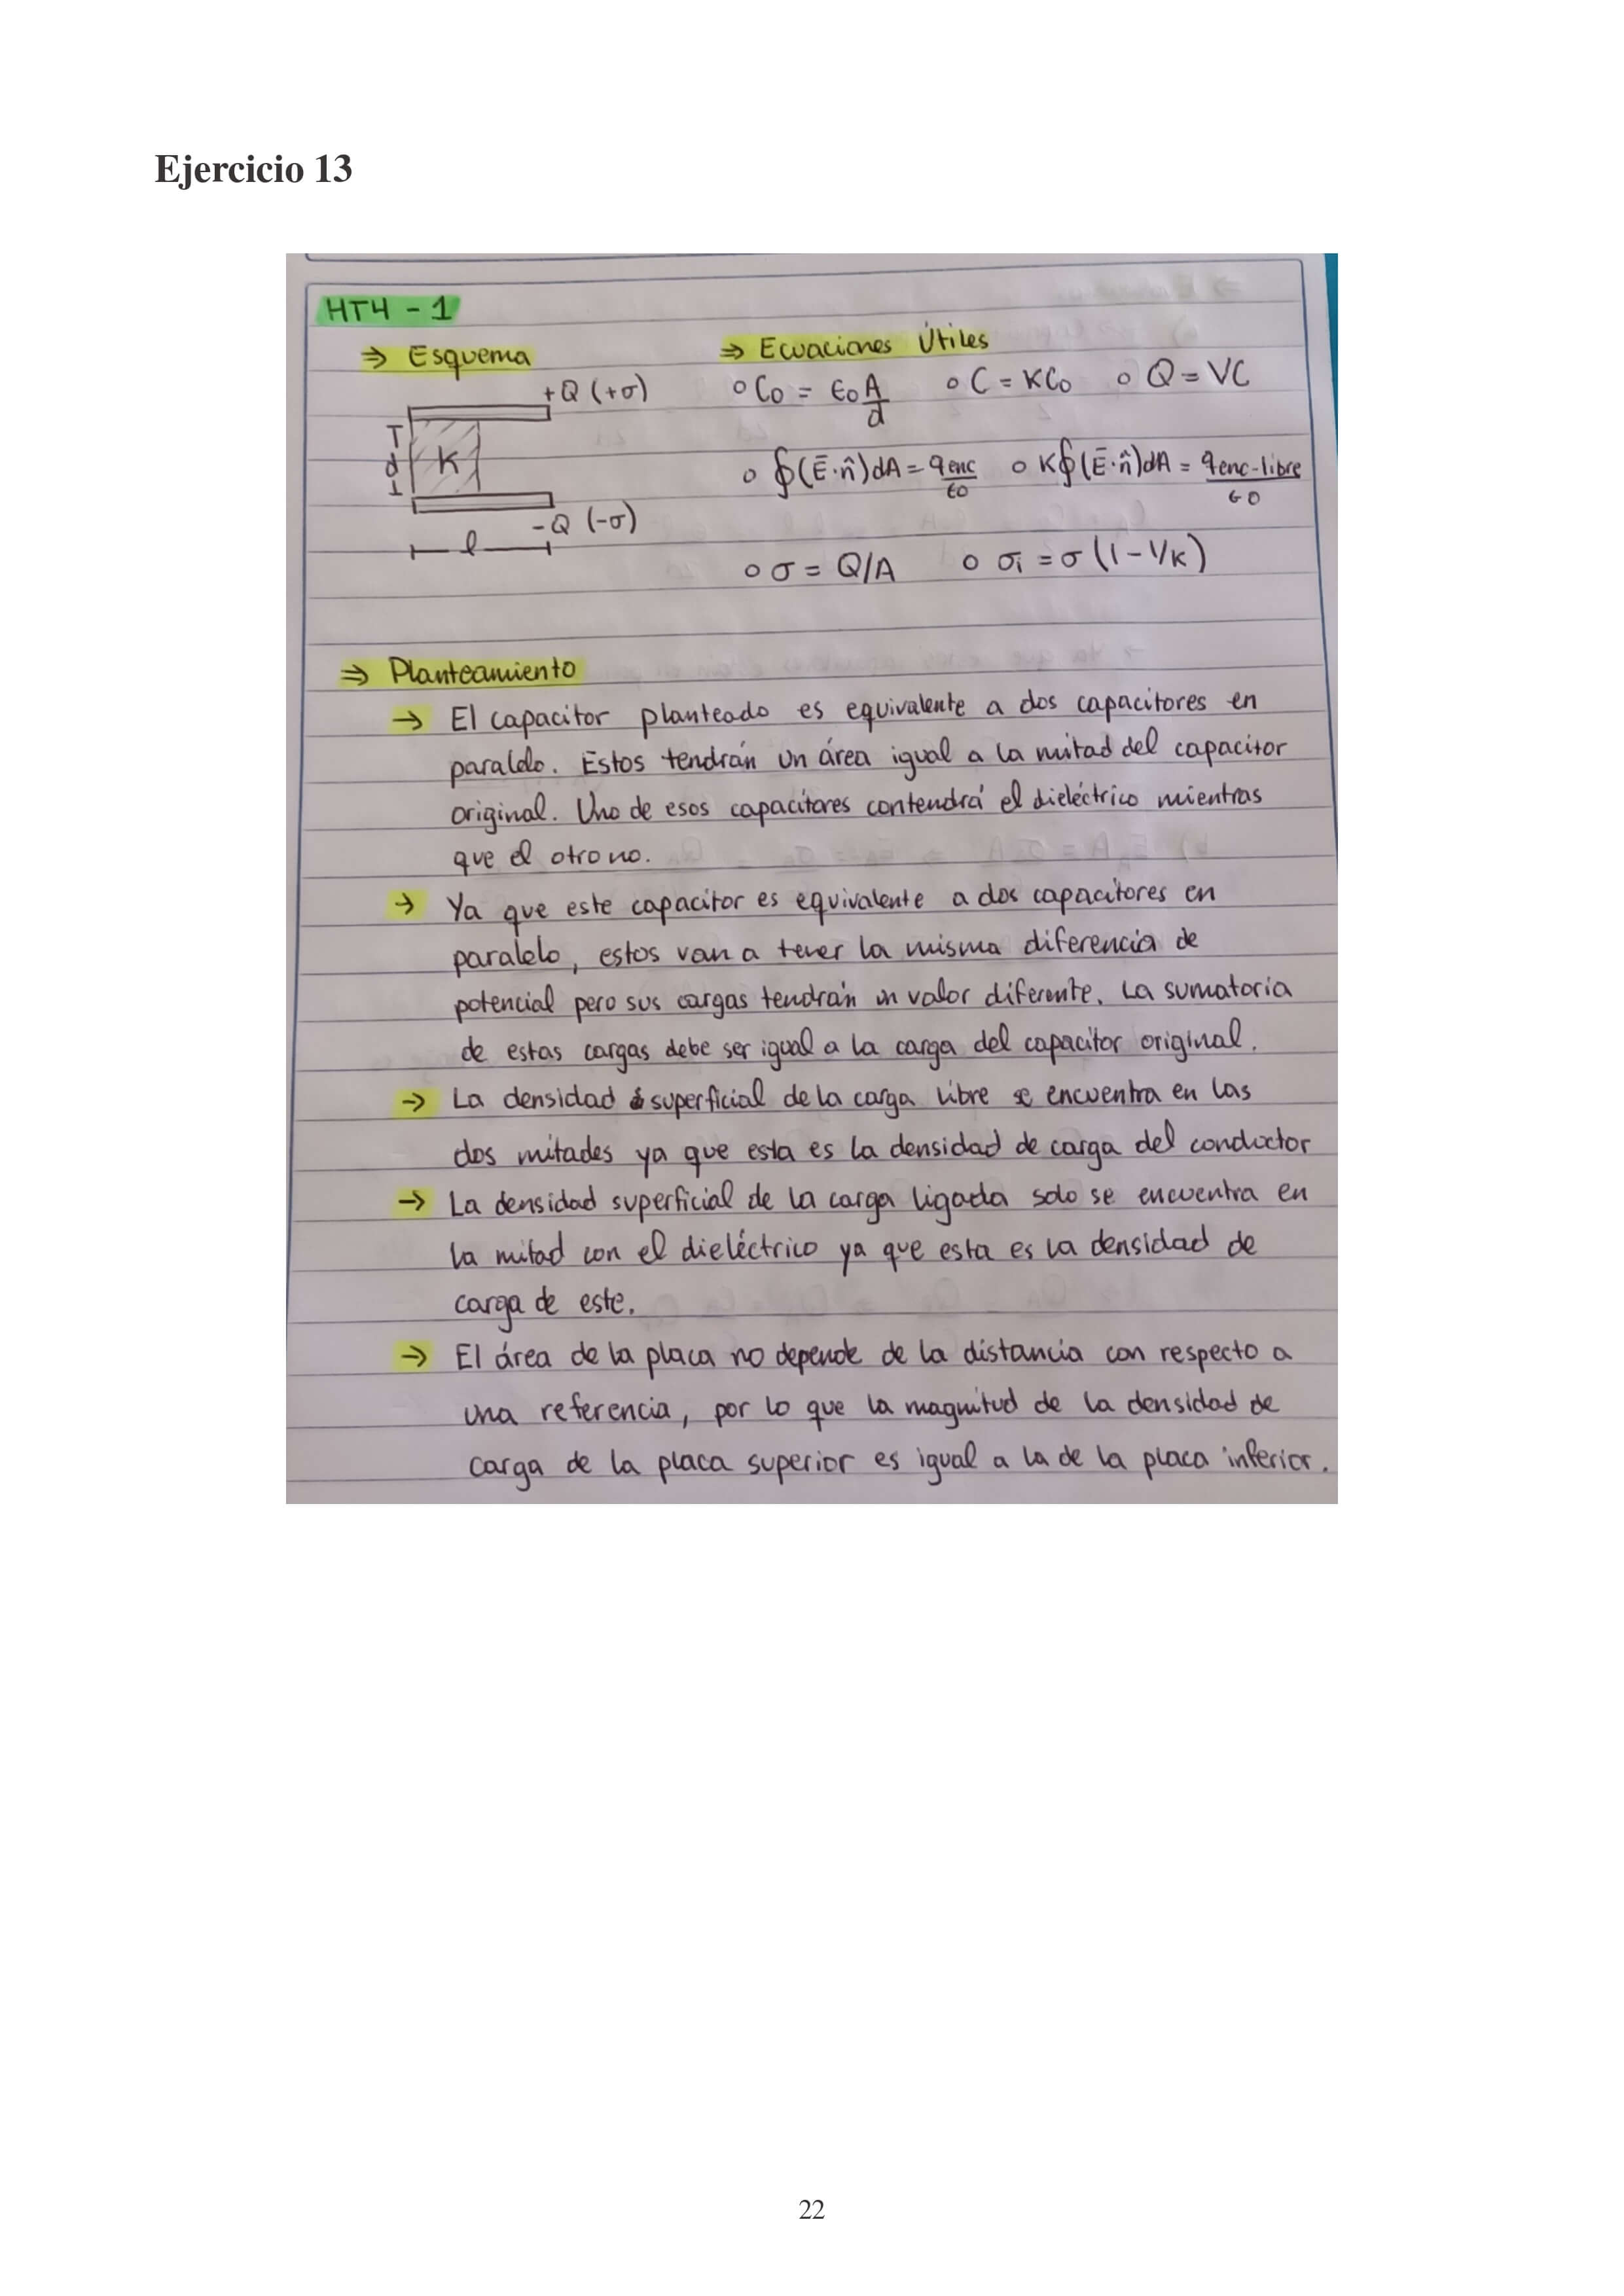 Ejercicio 13
HT4 - 1
⇒ Esquema
+Q (+σ)
T
d
⊥
K
-Q (-σ)
l
⇒ Ecuaciones Útiles
o C₀ = ϵ₀A/d o C = KC₀ o Q = VC
o ∮(Ē·n̂)dA = qenc/ϵ₀ o K∮(Ē·n̂)dA = qenc-libre/ϵ₀
o σ = Q/A o σᵢ = σ(1-1/K)
⇒ Planteamiento
→ El capacitor planteado es equivalente a dos capacitores en
paralelo. Estos tendrán un área igual a la mitad del capacitor
original. Uno de esos capacitores contendrá el dieléctrico mientras
que el otro no.
→ Ya que este capacitor es equivalente a dos capacitores en
paralelo, estos van a tener la misma diferencia de
potencial pero sus cargas tendrán un valor diferente. La sumatoria
de estas cargas debe ser igual a la carga del capacitor original.
→ La densidad superficial de la carga libre se encuentra en las
dos mitades ya que esta es la densidad de carga del conductor
→ La densidad superficial de la carga ligada solo se encuentra en
la mitad con el dieléctrico ya que esta es la densidad de
carga de este.
→ El área de la placa no depende de la distancia con respecto a
una referencia, por lo que la magnitud de la densidad de
carga de la placa superior es igual a la de la placa inferior.
22